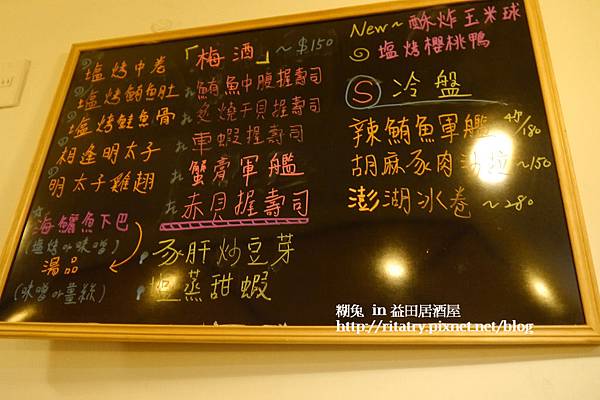 塩烤中卷
塩烤鮪魚肚
塩烤鮭魚骨
相逢明太子
明太子雞翅
海鱺魚下巴
(塩烤or味噌)
湯品
(味噌or薑絲)
「梅酒」~$150
鮪魚中腹握壽司
炙燒干貝握壽司
車蝦握壽司
蟹膏軍艦
赤貝握壽司
豕肝炒豆芽
蒸甜蝦
New~酥炸玉米球
塩烤櫻桃鴨
Ⓢ 冷盤
辣鮪魚軍艦 /180
胡麻豕肉沙拉~150
澎湖冰卷~280
糊兔 in 益田居酒屋
http://ritatry.pixnet.net/blog